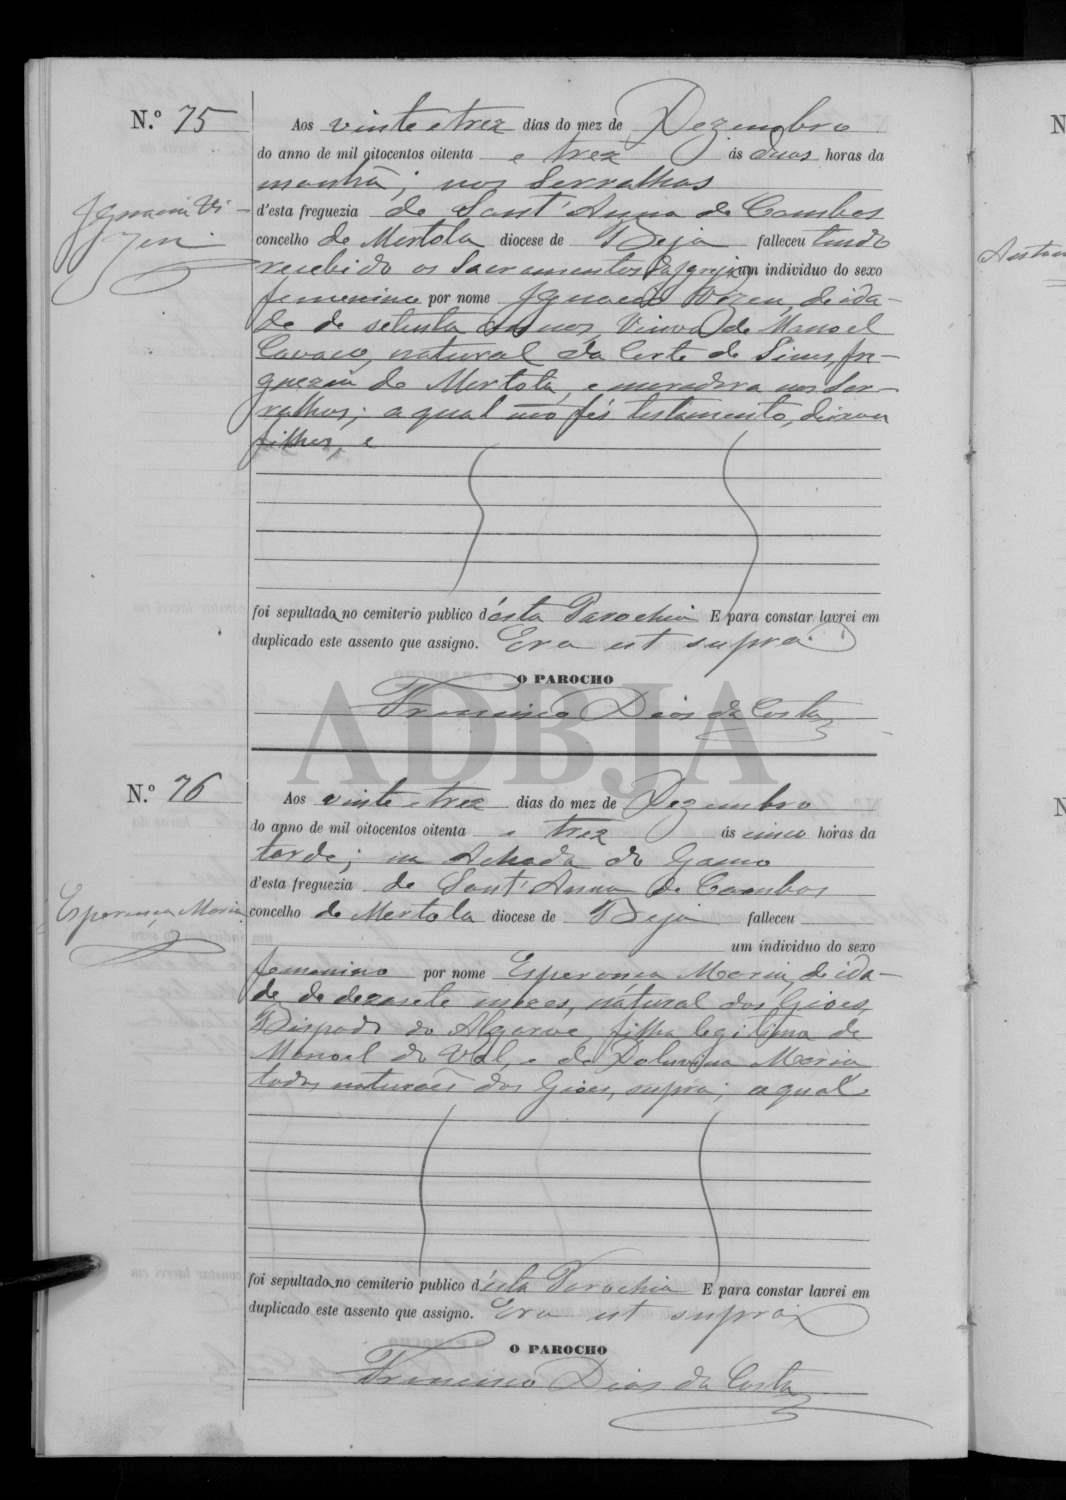 N.º 75
Aos vinte e trez dias do mez de Dezembro
do anno de mil oitocentos oitenta e trez ás duas horas da
manhã; nos Serralhas
Ignacia Vi-
d'esta freguezia de Sant'Anna de Cambas
zeu
concelho de Mertola diocese de Beja falleceu tendo
recebido os Sacramentos da Igreja um individuo do sexo
femenino por nome Ignacia Vizeu, de ida-
de de setenta annos, Viuva de Manoel
Cavaco, natural da Corte de Sines, fre-
guezia de Mertola, e moradora nos Ser-
ralhas; a qual não fés testamento, deixou
filhos, e
foi sepultada no cemiterio publico d'ésta Parochia E para constar lavrei em
duplicado este assento que assigno. Era ut supra.
O PAROCHO
Francisco Dias da Costa
ADBJA
N.º 76
Aos vinte e trez dias do mez de Dezembro
do anno de mil oitocentos oitenta e trez ás cinco horas da
tarde; na Achada do Gamo
d'esta freguezia de Sant'Anna de Cambas
Esperança Maria
concelho de Mertola diocese de Beja falleceu
um individuo do sexo
femenino por nome Esperança Maria, de ida-
de de dezasete mezes, natural dos Giões,
Bispado do Algarve, filha legitima de
Manoel do Val, e de Maria
todos naturaes dos Giões, supra; a qual
foi sepultada no cemiterio publico d'ésta Parochia E para constar lavrei em
duplicado este assento que assigno. Era ut supra
O PAROCHO
Francisco Dias da Costa